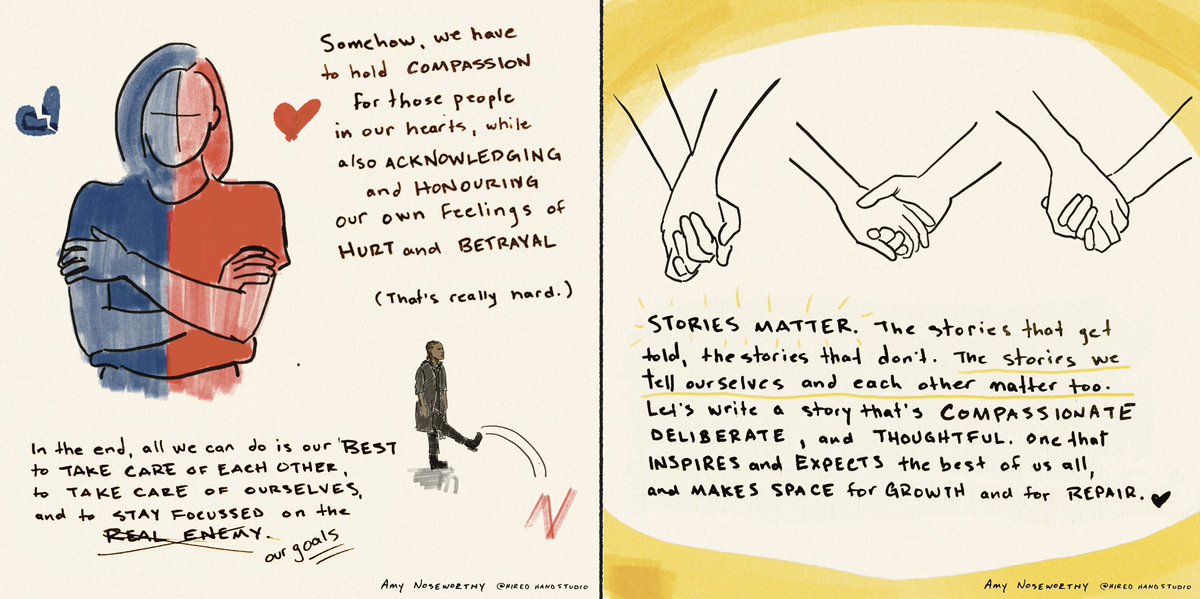 Somehow, we have
to hold COMPASSION
for those people
in our hearts, while
also ACKNOWLEDGING
and HONOURING
our own feelings of
HURT and BETRAYAL
(That's really hard.)
In the end, all we can do is our BEST
to TAKE CARE OF EACH OTHER,
to TAKE CARE OF OURSELVES,
and to STAY FOCUSSED on the
REAL ENEMY.
our goals
N
AMY NOSEWORTHY @HIREDHANDSTUDIO
STORIES MATTER. The stories that get
told, the stories that don't. The stories we
tell ourselves and each other matter too.
Let's write a story that's COMPASSIONATE
DELIBERATE, and THOUGHTFUL. One that
INSPIRES and EXPECTS the best of us all,
and MAKES SPACE for GROWTH and for REPAIR.
AMY NOSEWORTHY @HIREDHANDSTUDIO